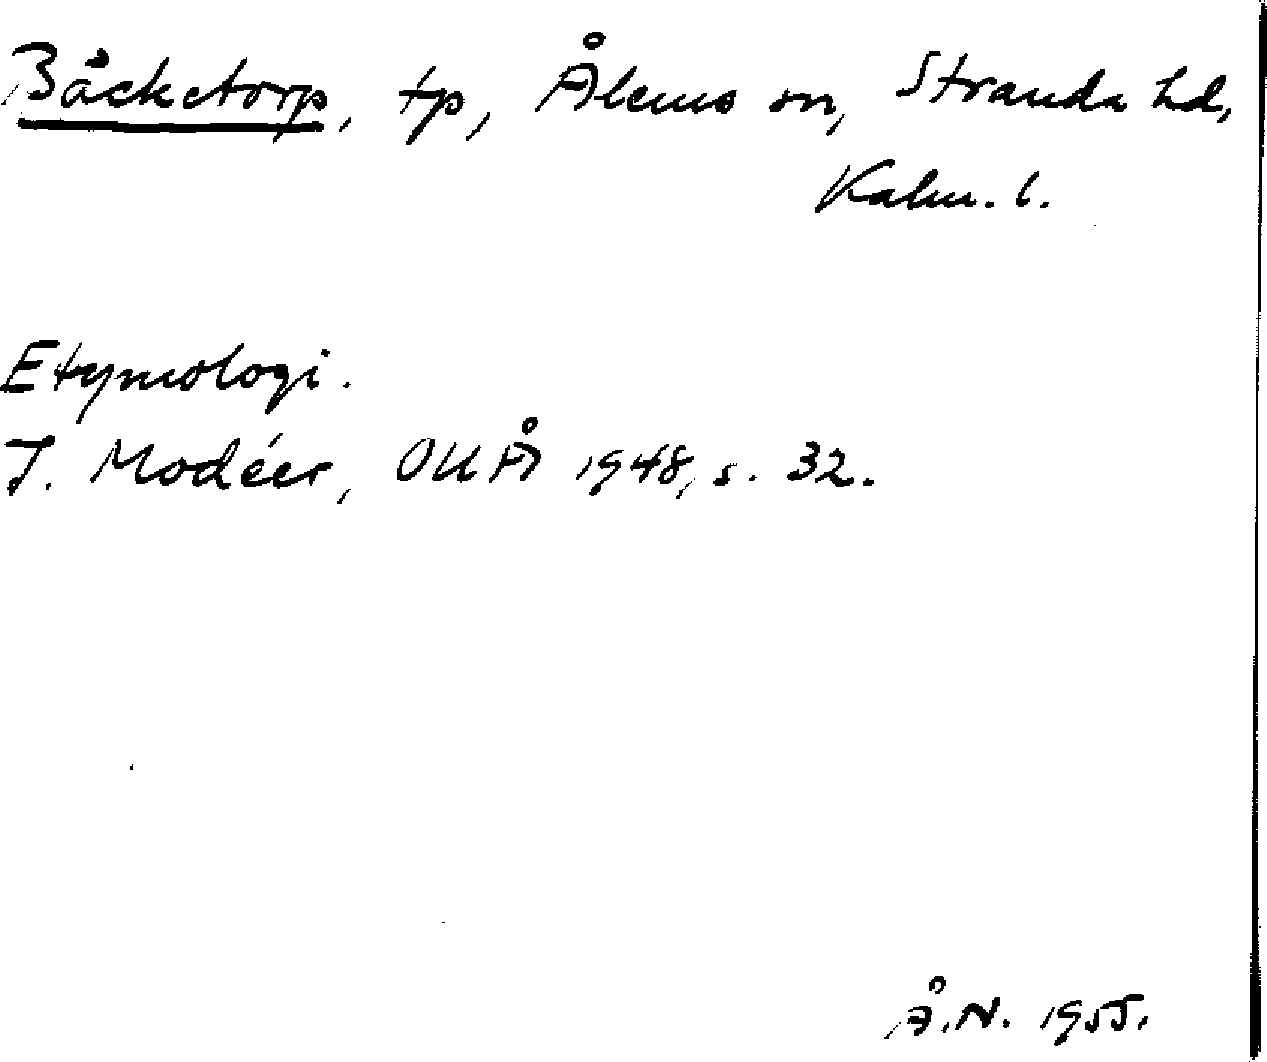 Bäcketorp, tp, Ålems sn, Stranda hd,
Kalm. l.
Etymologi.
I. Modéer, OUÅ 1948, s. 32.
Å.N. 1955.